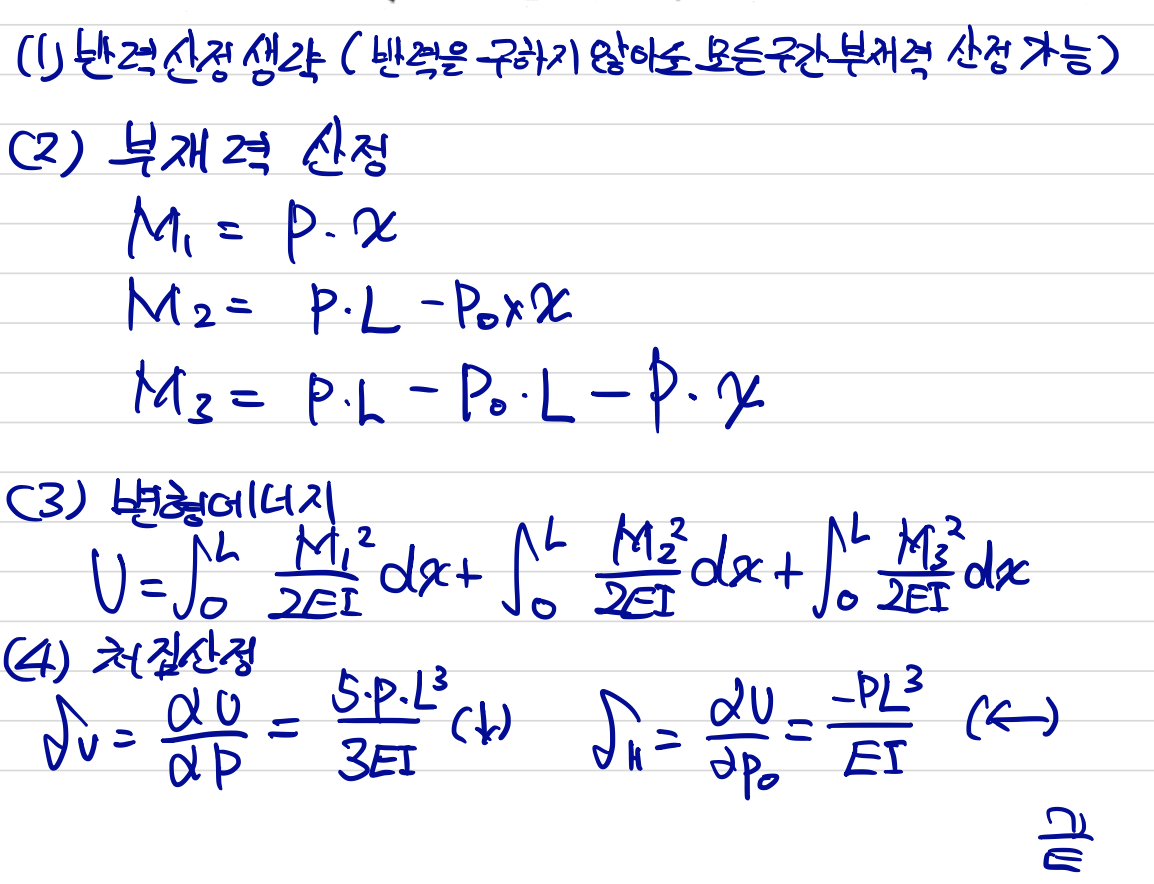 (1) 반력산정생략 (반력을 구하지 않아도 모든구간 부재력 산정 가능)
(2) 부재력 산정
M₁ = P·x
M₂ = P·L - P₀×x
M₃ = P·L - P₀·L - P·x
(3) 변형에너지
U = ∫₀ᴸ M₁²/2EI dx + ∫₀ᴸ M₂²/2EI dx + ∫₀ᴸ M₃²/2EI dx
(4) 처짐산정
δᵥ = ∂U/∂P = 5·P·L³/3EI (↓) δ_H = ∂U/∂P₀ = -PL³/EI (↔)
끝